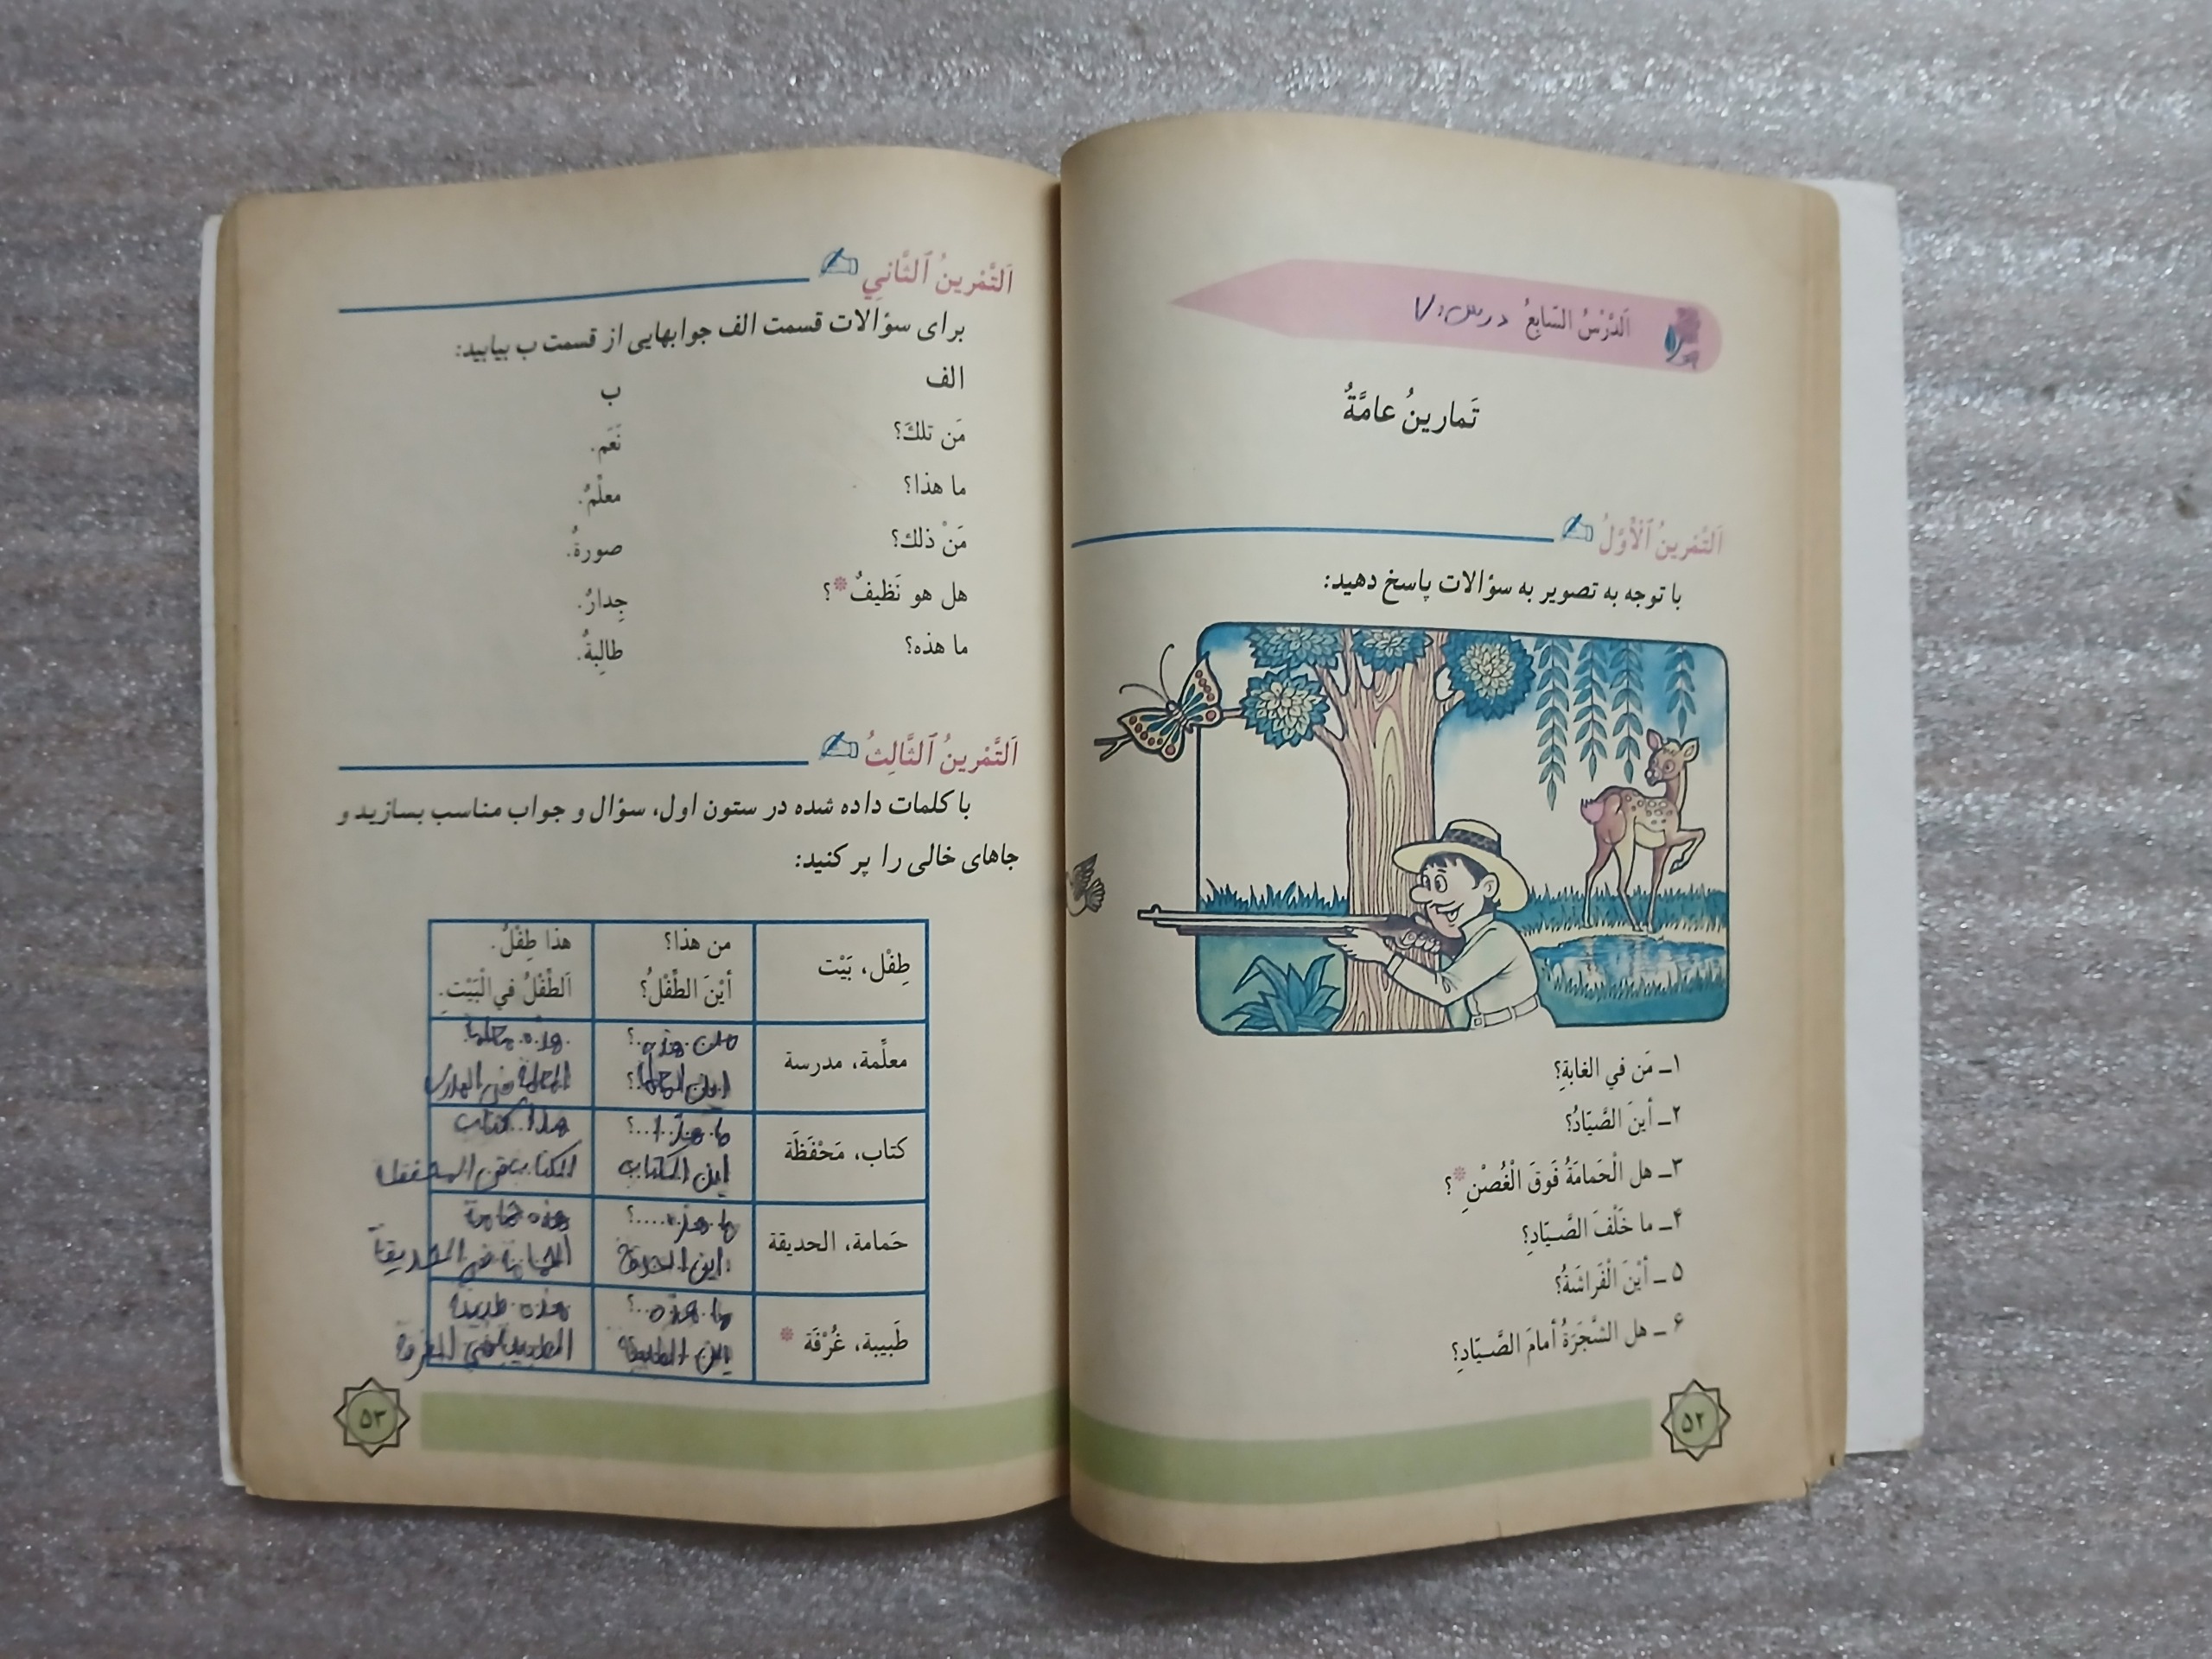 اَلدَّرْسُ السّابِعُ درس ۷
تَمارينُ عامَّةٌ
اَلتَّمْرينُ ٱلْأَوَّلُ
با توجه به تصویر به سؤالات پاسخ دهید:
۱ـ مَن في الغابةِ؟
۲ـ أينَ الصَّيّادُ؟
۳ـ هل الْحَمامَةُ فَوقَ الْغُصْنِ*؟
۴ـ ما خَلْفَ الصَّـيّادِ؟
۵ـ أيْنَ الْفَراشَةُ؟
۶ـ هل الشَّجَرَةُ أمامَ الصَّـيّادِ؟
۵۲
اَلتَّمْرينُ ٱلثّاني
برای سؤالات قسمت الف جوابهایی از قسمت ب بیابید:
الف ب
مَن تلكَ؟ نَعَم.
ما هذا؟ معلّمٌ.
مَنْ ذلك؟ صورةٌ.
هل هو نَظيفٌ*؟ جِدارٌ.
ما هذه؟ طالِبةٌ.
اَلتَّمْرينُ ٱلثّالِثُ
با کلمات داده شده در ستون اول، سؤال و جواب مناسب بسازید و
جاهای خالی را پر کنید:
طِفْل، بَيْت
من هذا؟ هذا طِفْلٌ.
أيْنَ الطِّفْلُ؟ اَلطِّفْلُ في الْبَيْتِ.
معلِّمة، مدرسة
من هذه؟ هذه
این المعلمة؟ المعلمة في
كتاب، مَحْفَظَة
ما هذا...؟ هذا كتاب
این الكتاب الكتاب في
حَمامة، الحديقة
ما هذه....؟ هذه حمامة
این في الحديقة
طَبيبة، غُرْفَة *
ما هذه...؟ هذه طبيبة
این الطبيبة الطبيبة في
۵۳